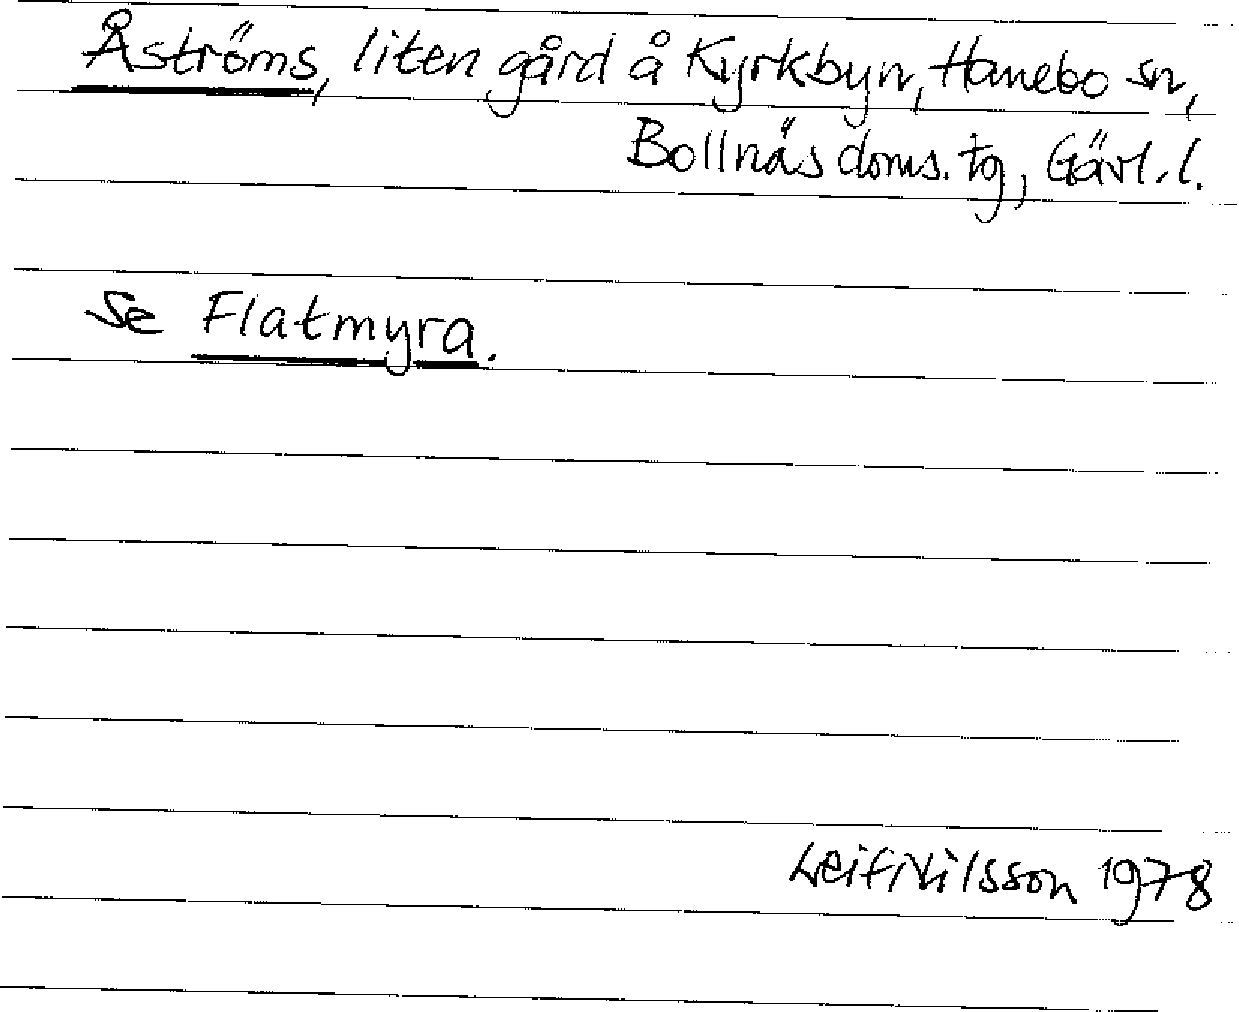 Åströms, liten gård å Kyrkbyn, Hanebo sn,
Bollnäs doms. tg, Gävl. l.
Se Flatmyra.
Leif Nilsson 1978